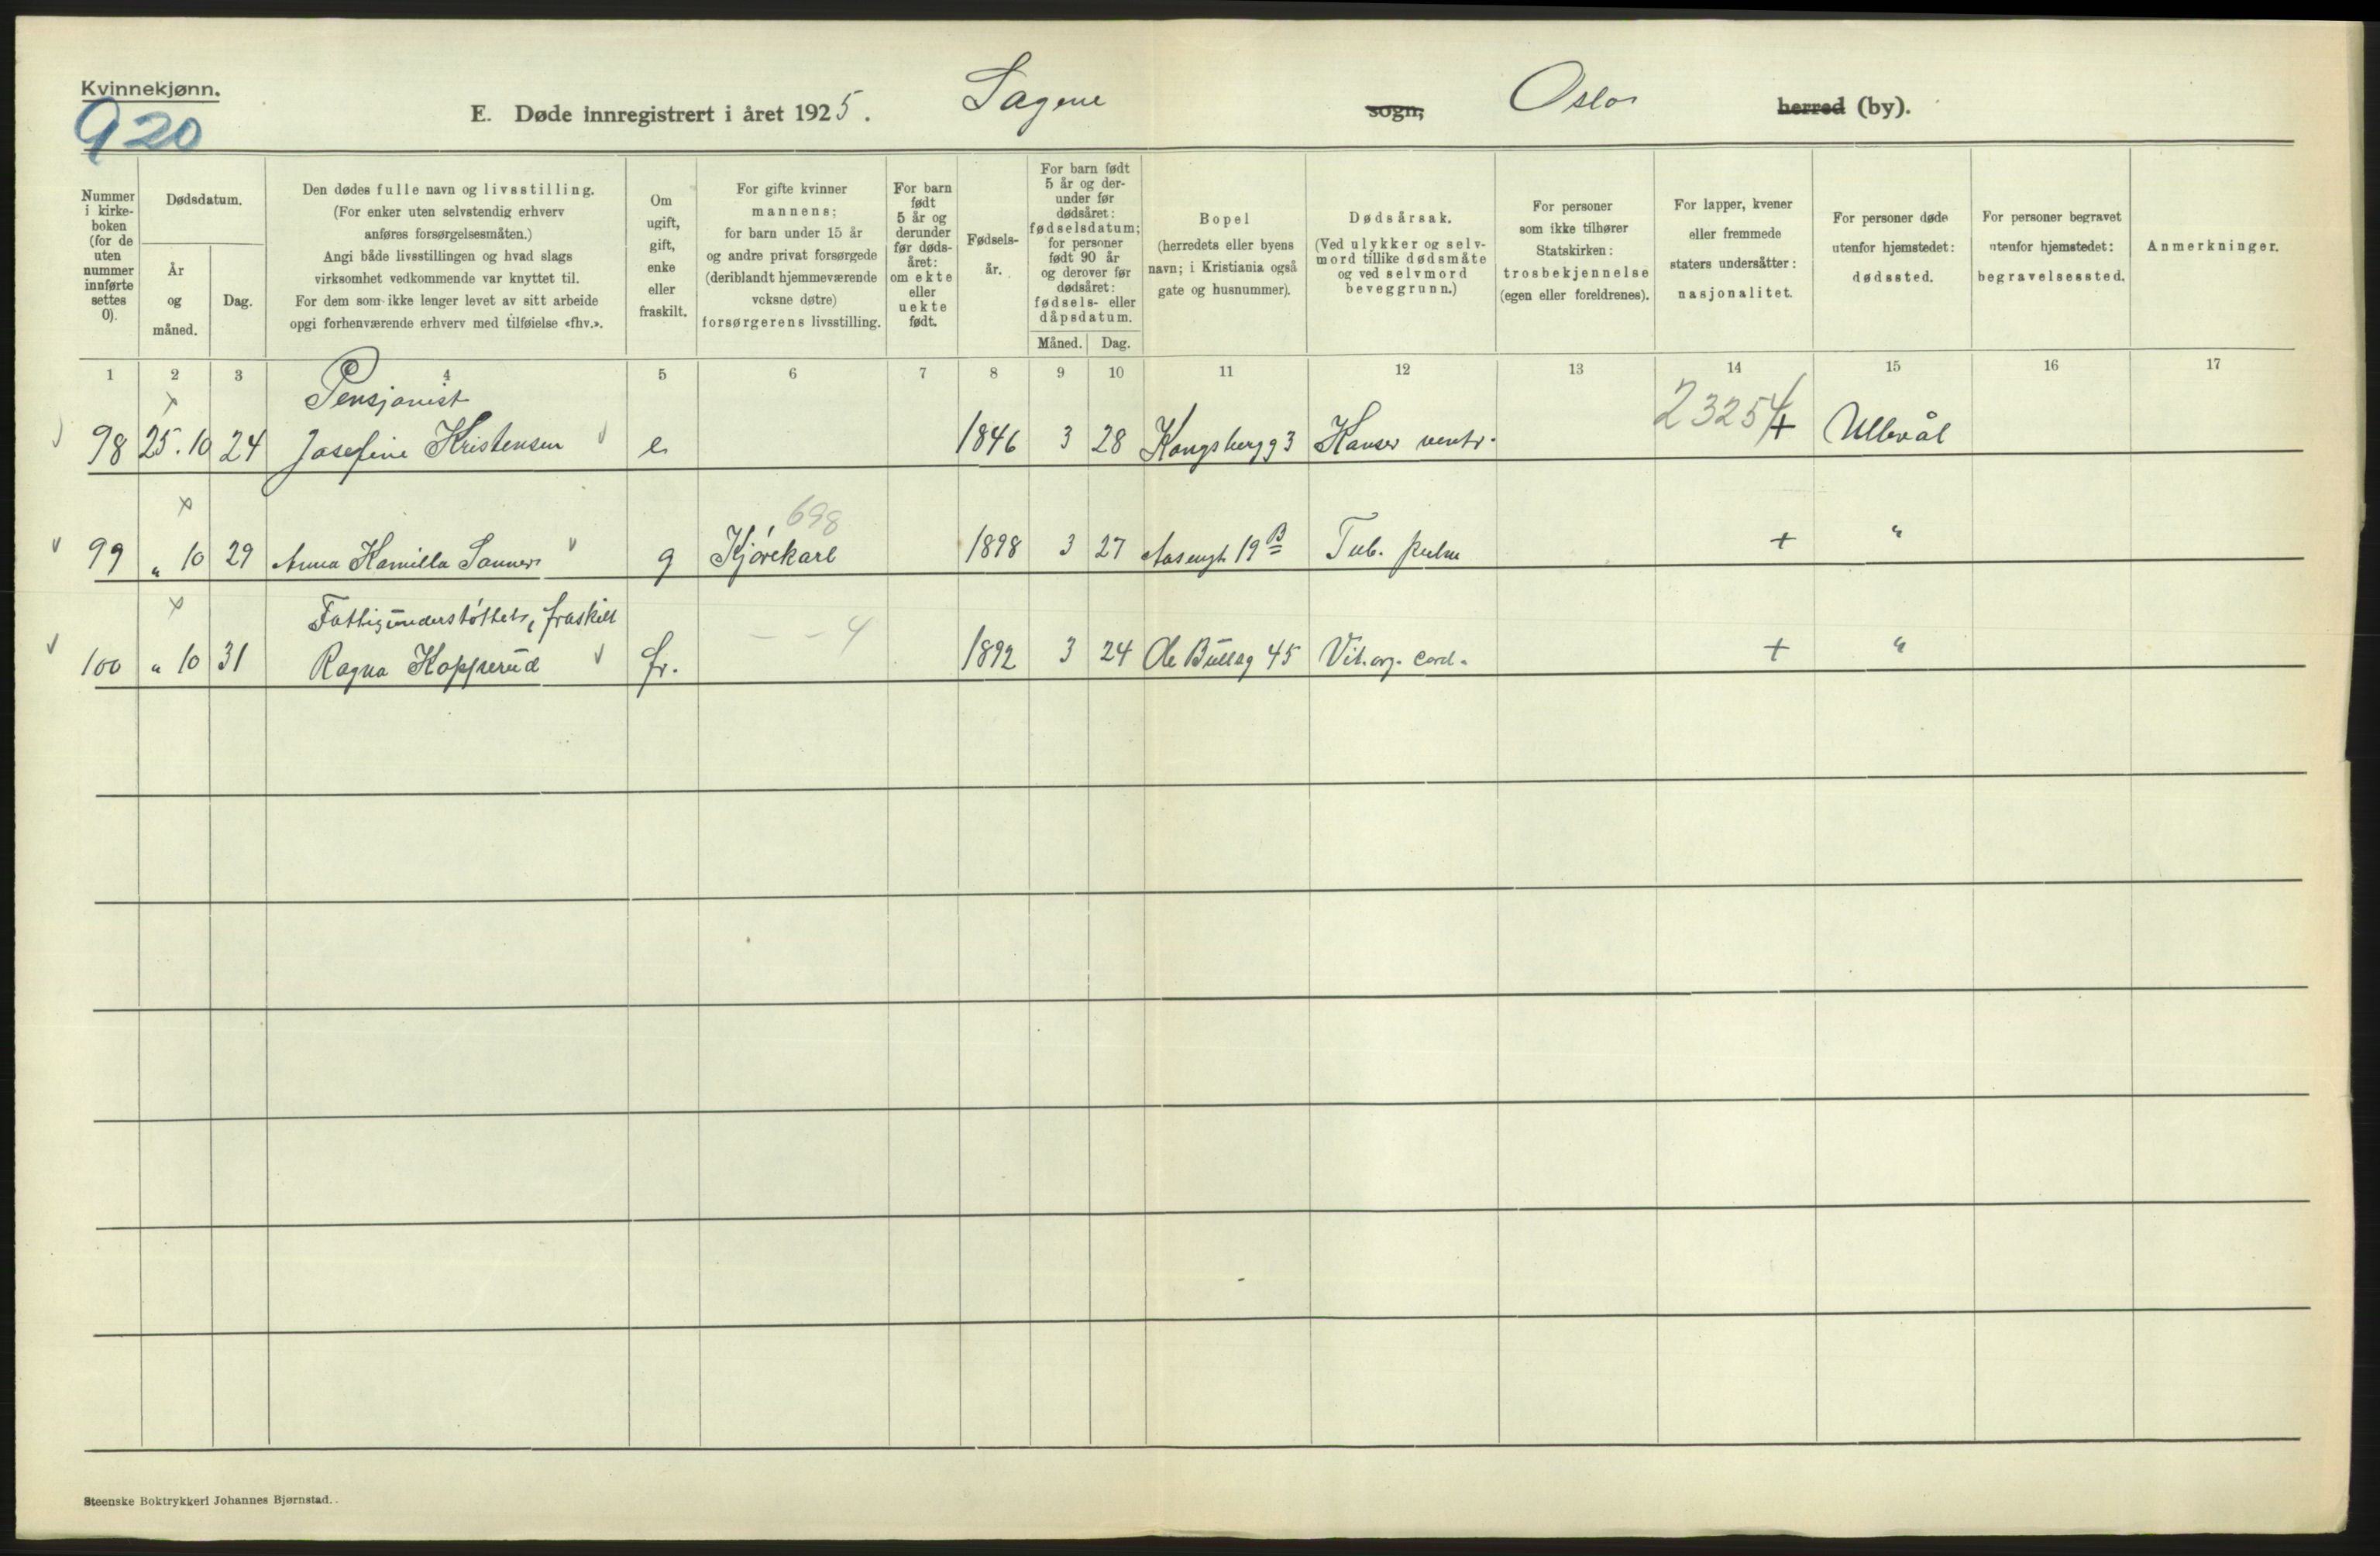 Kvinnekjønn.
920
E. Døde innregistrert i året 1925. Sagene sogn, Oslo herred (by).
Nummer i kirke- boken (for de uten nummer innførte settes 0).
Dødsdatum.
År og måned.
Dag.
Den dødes fulle navn og livsstilling.
(For enker uten selvstendig erhverv
anføres forsørgelsesmåten.)
Angi både livsstillingen og hvad slags
virksomhet vedkommende var knyttet til.
For dem som ikke lenger levet av sitt arbeide
opgi forhenværende erhverv med tilføielse «fhv.».
Om ugift, gift, enke eller fraskilt.
For gifte kvinner
mannens;
for barn under 15 år
og andre privat forsørgede
(deriblandt hjemmeværende
voksne døtre)
forsørgerens livsstilling.
For barn født 5 år og derunder før døds- året: om ekte eller uekte født.
Fødsels- år.
For barn født 5 år og der- under før dødsåret: fødselsdatum; for personer født 90 år og derover før dødsåret: fødsels- eller dåpsdatum.
Måned. Dag.
Bopel
(herredets eller byens
navn; i Kristiania også
gate og husnummer).
Dødsårsak.
(Ved ulykker og selv-
mord tillike dødsmåte
og ved selvmord
beveggrunn.)
For personer
som ikke tilhører
Statskirken:
trosbekjennelse
(egen eller foreldrenes).
For lapper, kvener
eller fremmede
staters undersåtter:
nasjonalitet.
For personer døde
utenfor hjemstedet:
dødssted.
For personer begravet
utenfor hjemstedet:
begravelsessted.
Anmerkninger.
1 2 3 4 5 6 7 8 9 10 11 12 13 14 15 16 17
x Pensjonist 23254
98 25.10 24 Josefine Kristensen e 1846 3 28 Kongsbergg 3 Kanser ventr. + Ullevål
x 698
99 " 10 29 Anna Kamilla Sanner g Kjørekarl 1898 3 27 Aasengt. 19 B Tub. pulm + "
x Fattigunderstøttet, fraskilt — — 4
100 " 10 31 Ragna Kopperud fr. 1892 3 24 Ole Bullsg 45 Vit. org. cord. + "
Steenske Boktrykkeri Johannes Bjørnstad.